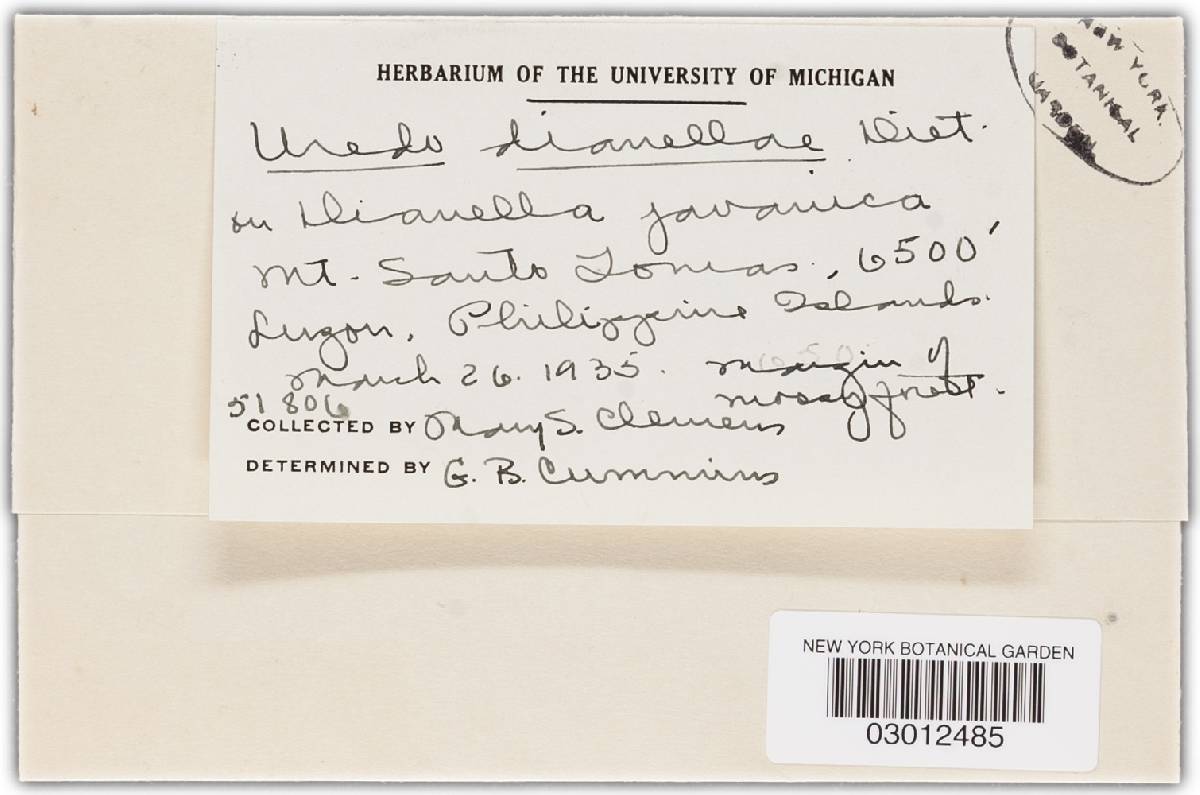 HERBARIUM OF THE UNIVERSITY OF MICHIGAN
NEW YORK
BOTANICAL
GARDEN
Uredo dianellae Diet.
on Dianella javanica
Mt. Santo Tomas, 6500'
Luzon, Philippine Islands.
March 26. 1935. margin of
mossy forest.
51806
COLLECTED BY Mary S. Clemens
DETERMINED BY G. B. Cummins
NEW YORK BOTANICAL GARDEN
03012485